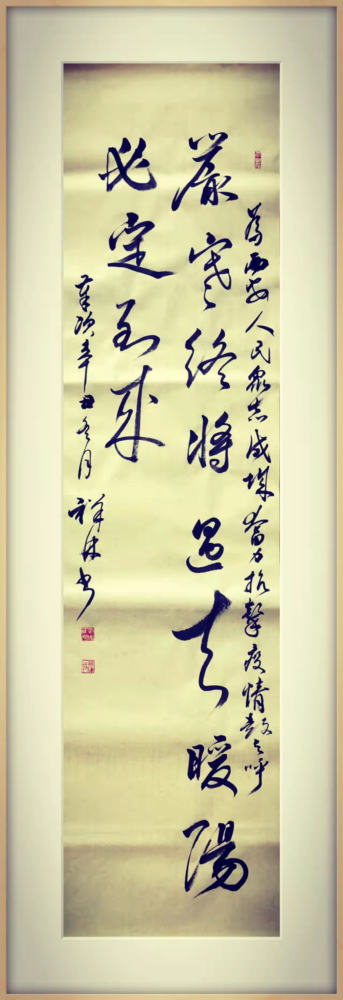 為西安人民眾志成城奮力抗擊疫情鼓与呼
嚴寒終將過去暖陽
必定到來
歲次辛丑冬月 祥林書